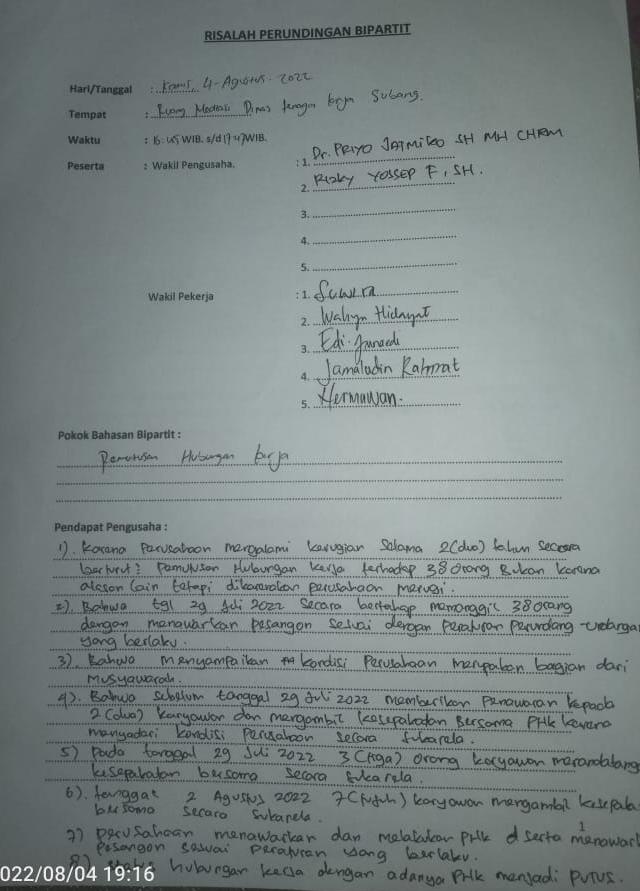 RISALAH PERUNDINGAN BIPARTIT
Hari/Tanggal : Kamis, 4-Agustus-2022
Tempat : Ruang Mediasi Dinas tenaga kerja Subang.
Waktu : 15:45 WIB. s/d 17:47 WIB.
Peserta : Wakil Pengusaha. : 1. Dr. PRIYO JATMIKO SH MH CHRM
2. Rizky YOSSEP F, SH.
3.
4.
5.
Wakil Pekerja : 1. Suwira
2. Wahyu Hidayat
3. Edi Junaedi
4. Jamaludin Rahmat
5. Hermawan.
Pokok Bahasan Bipartit :
Pemutusan Hubungan kerja
Pendapat Pengusaha :
1). Karena Perusahaan mengalami kerugian Selama 2(dua) tahun secara
berturut² Pemutusan Hubungan kerja terhadap 38 orang Bukan karena
alasan lain tetapi dikarenakan perusahaan merugi.
2). Bahwa tgl 29 Juli 2022 Secara bertahap memanggil 38 orang
dengan menawarkan pesangon sesuai dengan Peraturan Perundang-undangan
yang berlaku.
3) Bahwa menyampaikan kondisi Perusahaan merupakan bagian dari
Musyawarah.
4). Bahwa Sebelum tanggal 29 Juli 2022 memberikan Penawaran kepada
2(dua) karyawan dan mengambil kesepakatan Bersama PHK karena
menyadari kondisi Perusahaan secara sukarela.
5) Pada tanggal 29 Juli 2022 3(tiga) orang karyawan menandatang
kesepakatan bersama secara sukarela.
6). tanggal 2 Agustus 2022 7(tujuh) karyawan mengambil kesepak
bersama secara sukarela.
7) perusahaan menawarkan dan melakukan PHK diserta menawar
Pesangon sesuai peraturan yang berlaku.
8) hubungan kerja dengan adanya PHK menjadi PUTUS.
1
022/08/04 19:16